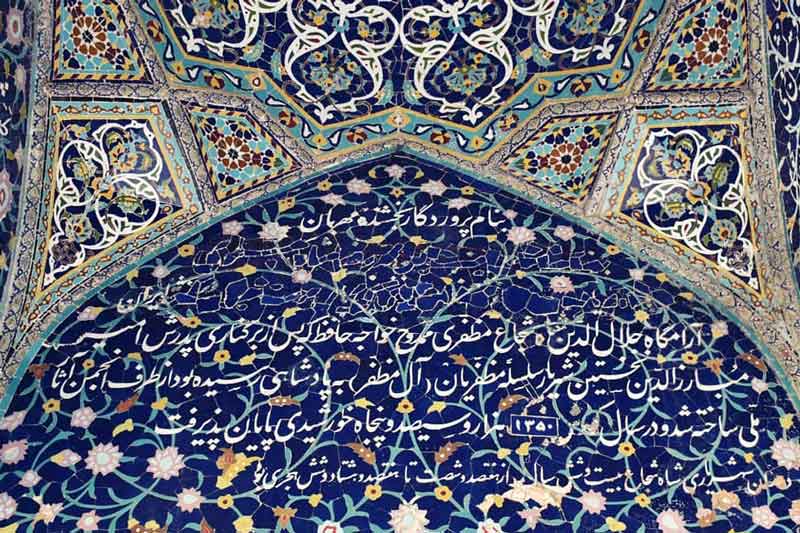 بنام پروردگار بخشنده مهربان
آرامگاه جلال الدین شاه شجاع مظفری ممدوح خواجه حافظ که پس از گرفتاری پدرش امیر
مبارزالدین نخستین شهریار از سلسله مظفریان (آل مظفر) به پادشاهی رسیده بود از طرف انجمن آثار
ملی ساخته شد و در سال ۱۳۵۰ هزار و سیصد و پنجاه خورشیدی پایان پذیرفت
شهریاری شاه شجاع بیست و شش سال از هفتصد و شصت تا هفتصد و هشتاد و شش هجری بود